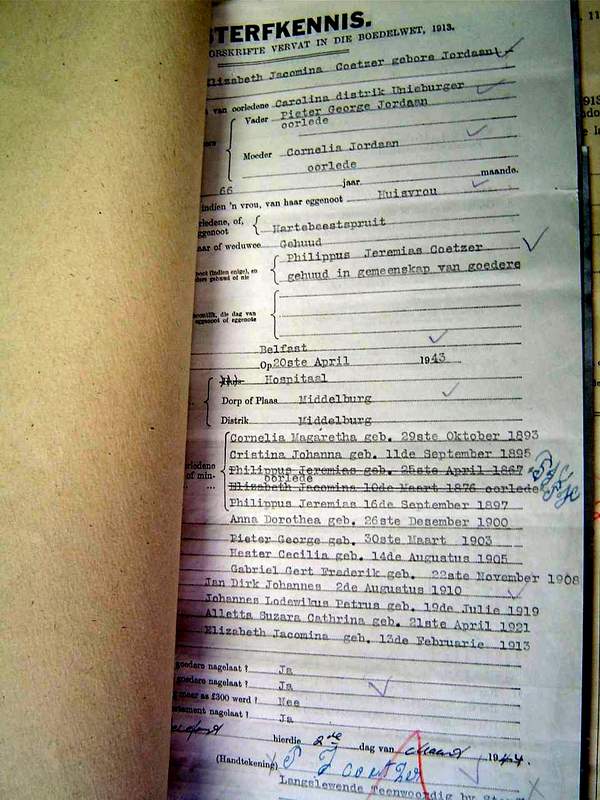 STERFKENNIS.
ORSKRIFTE VERVAT IN DIE BOEDELWET, 1913.
Elizabeth Jacomina Coetzer gebore Jordaan
van oorledene Carolina distrik Unieburger
Vader Pieter George Jordaan
oorlede
Moeder Cornelia Jordaan
oorlede
66 jaar maande.
indien 'n vrou, van haar eggenoot Huisvrou
rledene, of,
ggenoot Hartebeestspruit
aar of weduwee Gehuud
noot (indien enige), en Philippus Jeremias Coetzer
ders gehuud of nie gehuud in gemeenskap van goedere
die dag van
eggenoot of eggenote
Belfast
Op 20ste April 1943
Hospitaal
Dorp of Plaas Middelburg
Distrik Middelburg
Cornelia Magaretha geb. 29ste Oktober 1893
Cristina Johanna geb. 11de September 1895
rledene Philippus Jeremias geb. 25ste April 1867
of min- oorlede
Elizabeth Jacomina 10de Maart 1876 oorlede
Philippus Jeremias 16de September 1897
Anna Dorothea geb. 26ste Desember 1900
Pieter George geb. 30ste Maart 1903
Hester Cecilia geb. 14de Augustus 1905
Gabriel Gert Frederik geb. 22ste November 1908
Jan Dirk Johannes 2de Augustus 1910
Johannes Lodewikus Petrus geb. 19de Julie 1919
Alletta Suzara Cathrina geb. 21ste April 1921
Elizabeth Jacomina geb. 13de Februarie 1913
goedere nagelaat ? Ja
goedere nagelaat ? Ja
meer as £300 werd ? Nee
estament nagelaat ? Ja
hierdie 2de dag van Maart 1944.
(Handtekening)
Langslewende Teenwoordig by